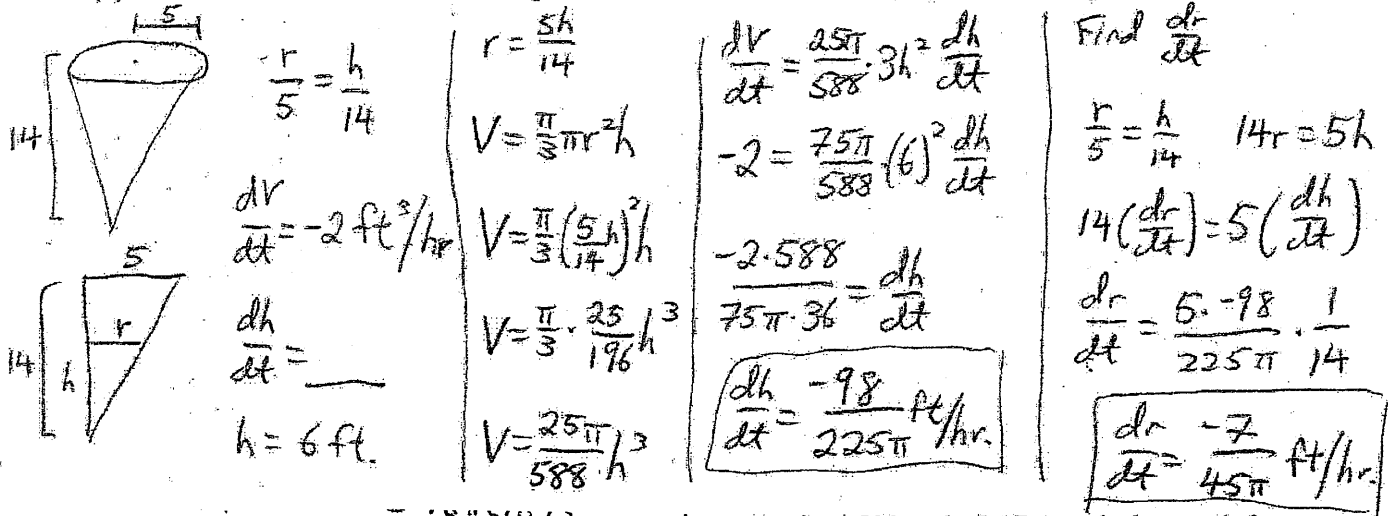 5
14
r/5 = h/14
dV/dt = -2 ft³/hr
5
14
r
h
dh/dt = ___
h = 6 ft.
r = 5h/14
V = π/3 πr²h
V = π/3 (5/14 h)² h
V = π/3 · 25/196 h³
V = 25π/588 h³
dV/dt = 25π/588 · 3h² dh/dt
-2 = 75π/588 · (6)² dh/dt
-2·588/75π·36 = dh/dt
dh/dt = -98/225π ft/hr.
Find dr/dt
r/5 = h/14 14r = 5h
14(dr/dt) = 5(dh/dt)
dr/dt = 5·-98/225π · 1/14
dr/dt = -7/45π ft/hr.